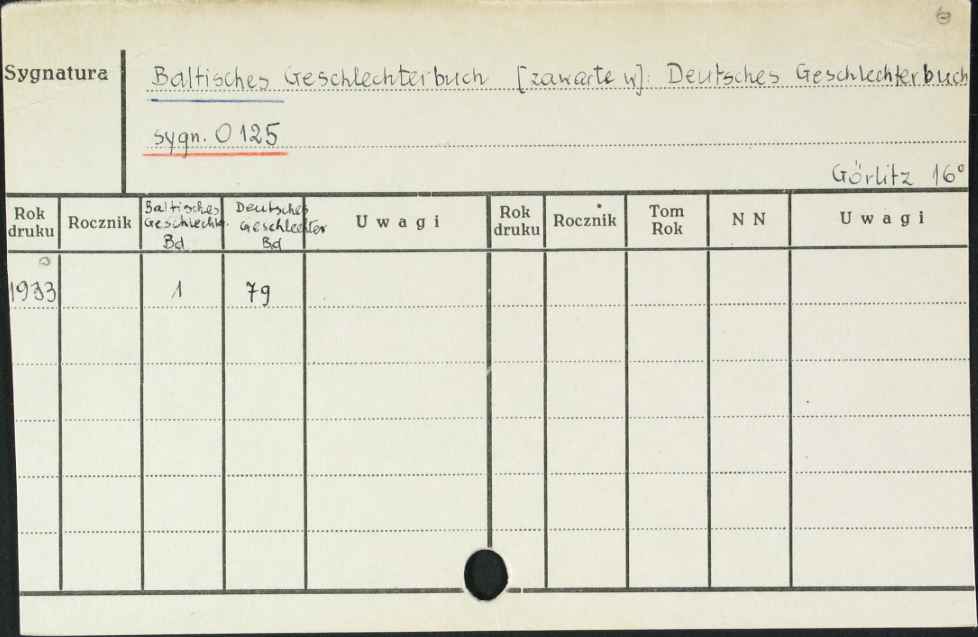 Sygnatura
Baltisches Geschlechterbuch [zawarte w]: Deutsches Geschlechterbuch
sygn. O 125
Görlitz 16°
Rok druku Rocznik Baltisches Geschlecht. Bd Deutsches Geschlechter Bd Uwagi Rok druku Rocznik Tom Rok NN Uwagi
1933 1 79